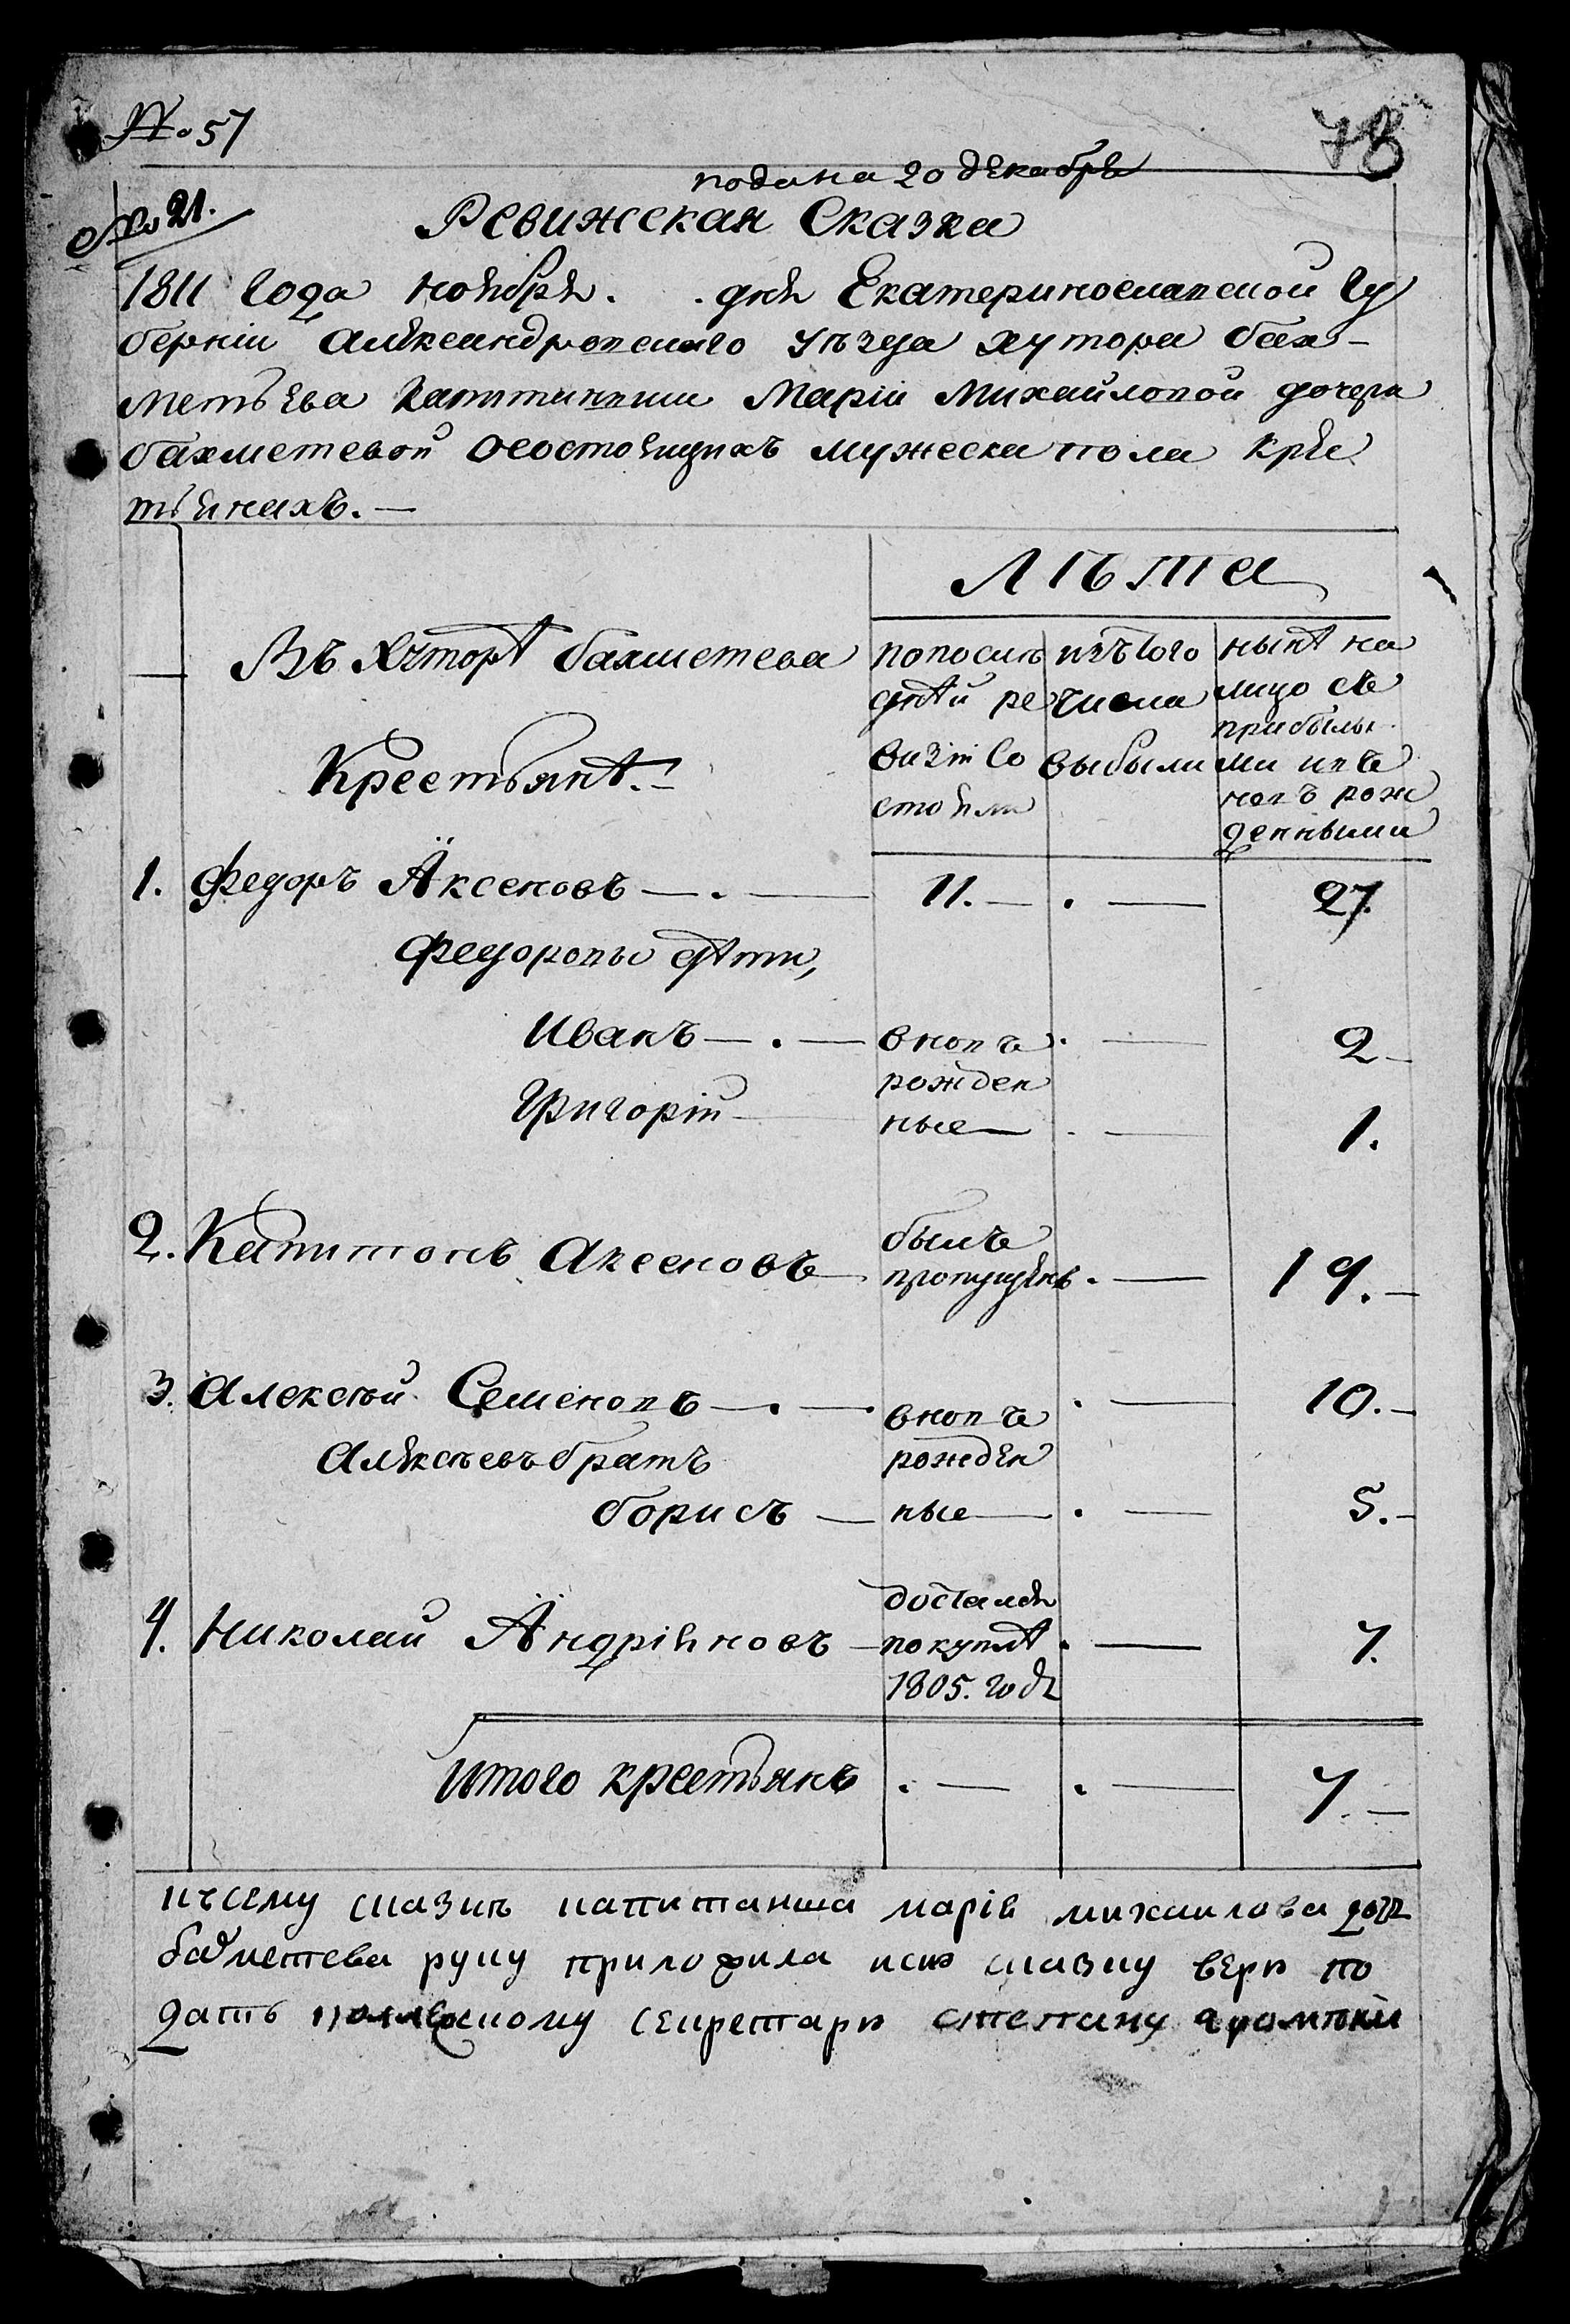 № 57
78
подана 20 декабря
№ 21.
Ревижская Сказка
1811 года ноября . . дня Екатеринославской Гу
берніи Александровскаго уѣзда хутора Бах-
метьева Капитанши Маріи Михайловой дочери
Бахметевой осостоящихъ мужеска пола кре
тьянахъ. —
Лѣта
Въ Хуторѣ Бахметева
Крестьянѣ. —
по послѣ
дней ре
визіи со
стояли
изъ того
числа
выбыли
нынѣ на
лицо съ
прибылы
ми и въ
новъ рож
денными
1. Федоръ Аксеновъ — . — 11. — . — 27.
Федоровы дѣти,
Иванъ — . — вновь . — 2 —
рожден
Григорій — ные — . — 1.
2. Капитонъ Аксеновъ — былъ
пропущенъ . — 19. —
3. Алексѣй Семеновъ — . — . — 10. —
вновь
Алексѣевъ братъ рожден
Борисъ — ные — . — 5. —
4. Николай Андріяновъ — достался
покупкѣ . — 7.
1805. годѣ
Итого крестьянъ . — . — 7. —
къ сему сказкѣ капитанша марія михаилова дочь
бахметева руку приложила исию сказку верю по
дать секретарю степану